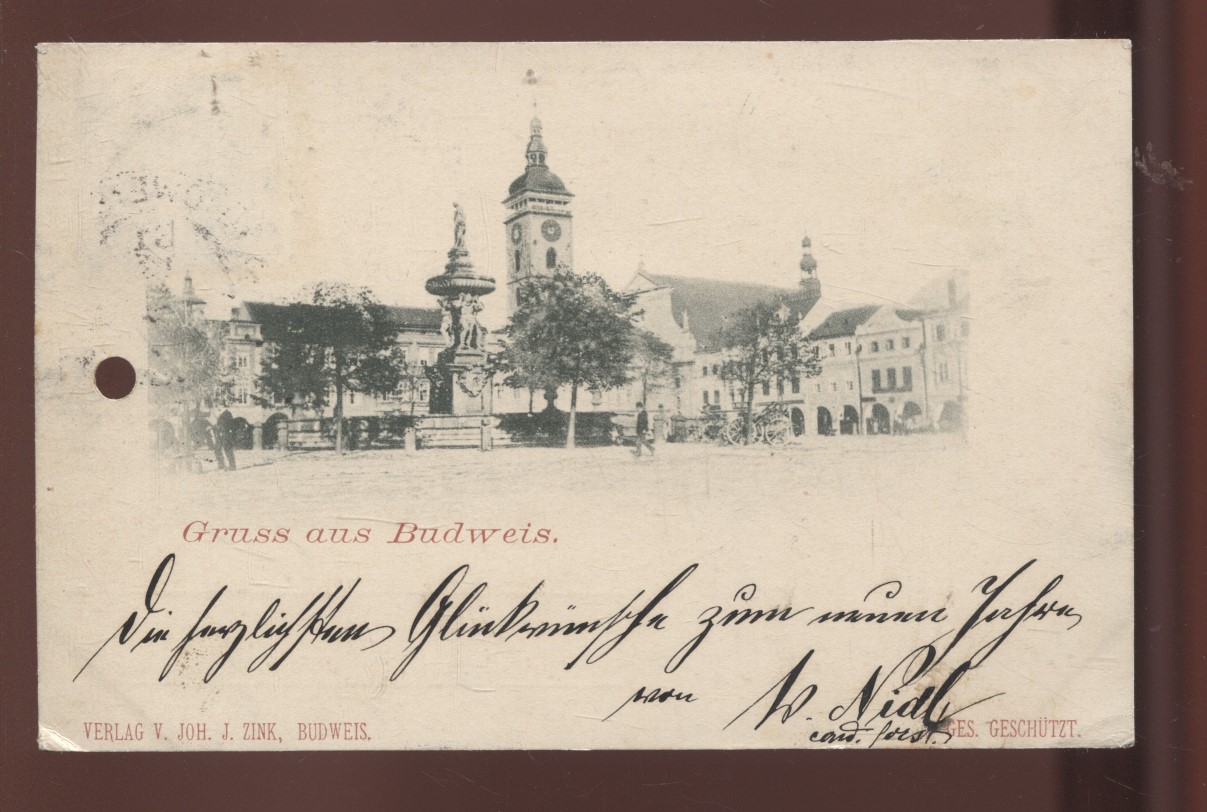 Gruss aus Budweis.
Die herzlichsten Glückwünsche zum neuen Jahre
von W. Nidl
cand. forst.
VERLAG V. JOH. J. ZINK, BUDWEIS.
GES. GESCHÜTZT.